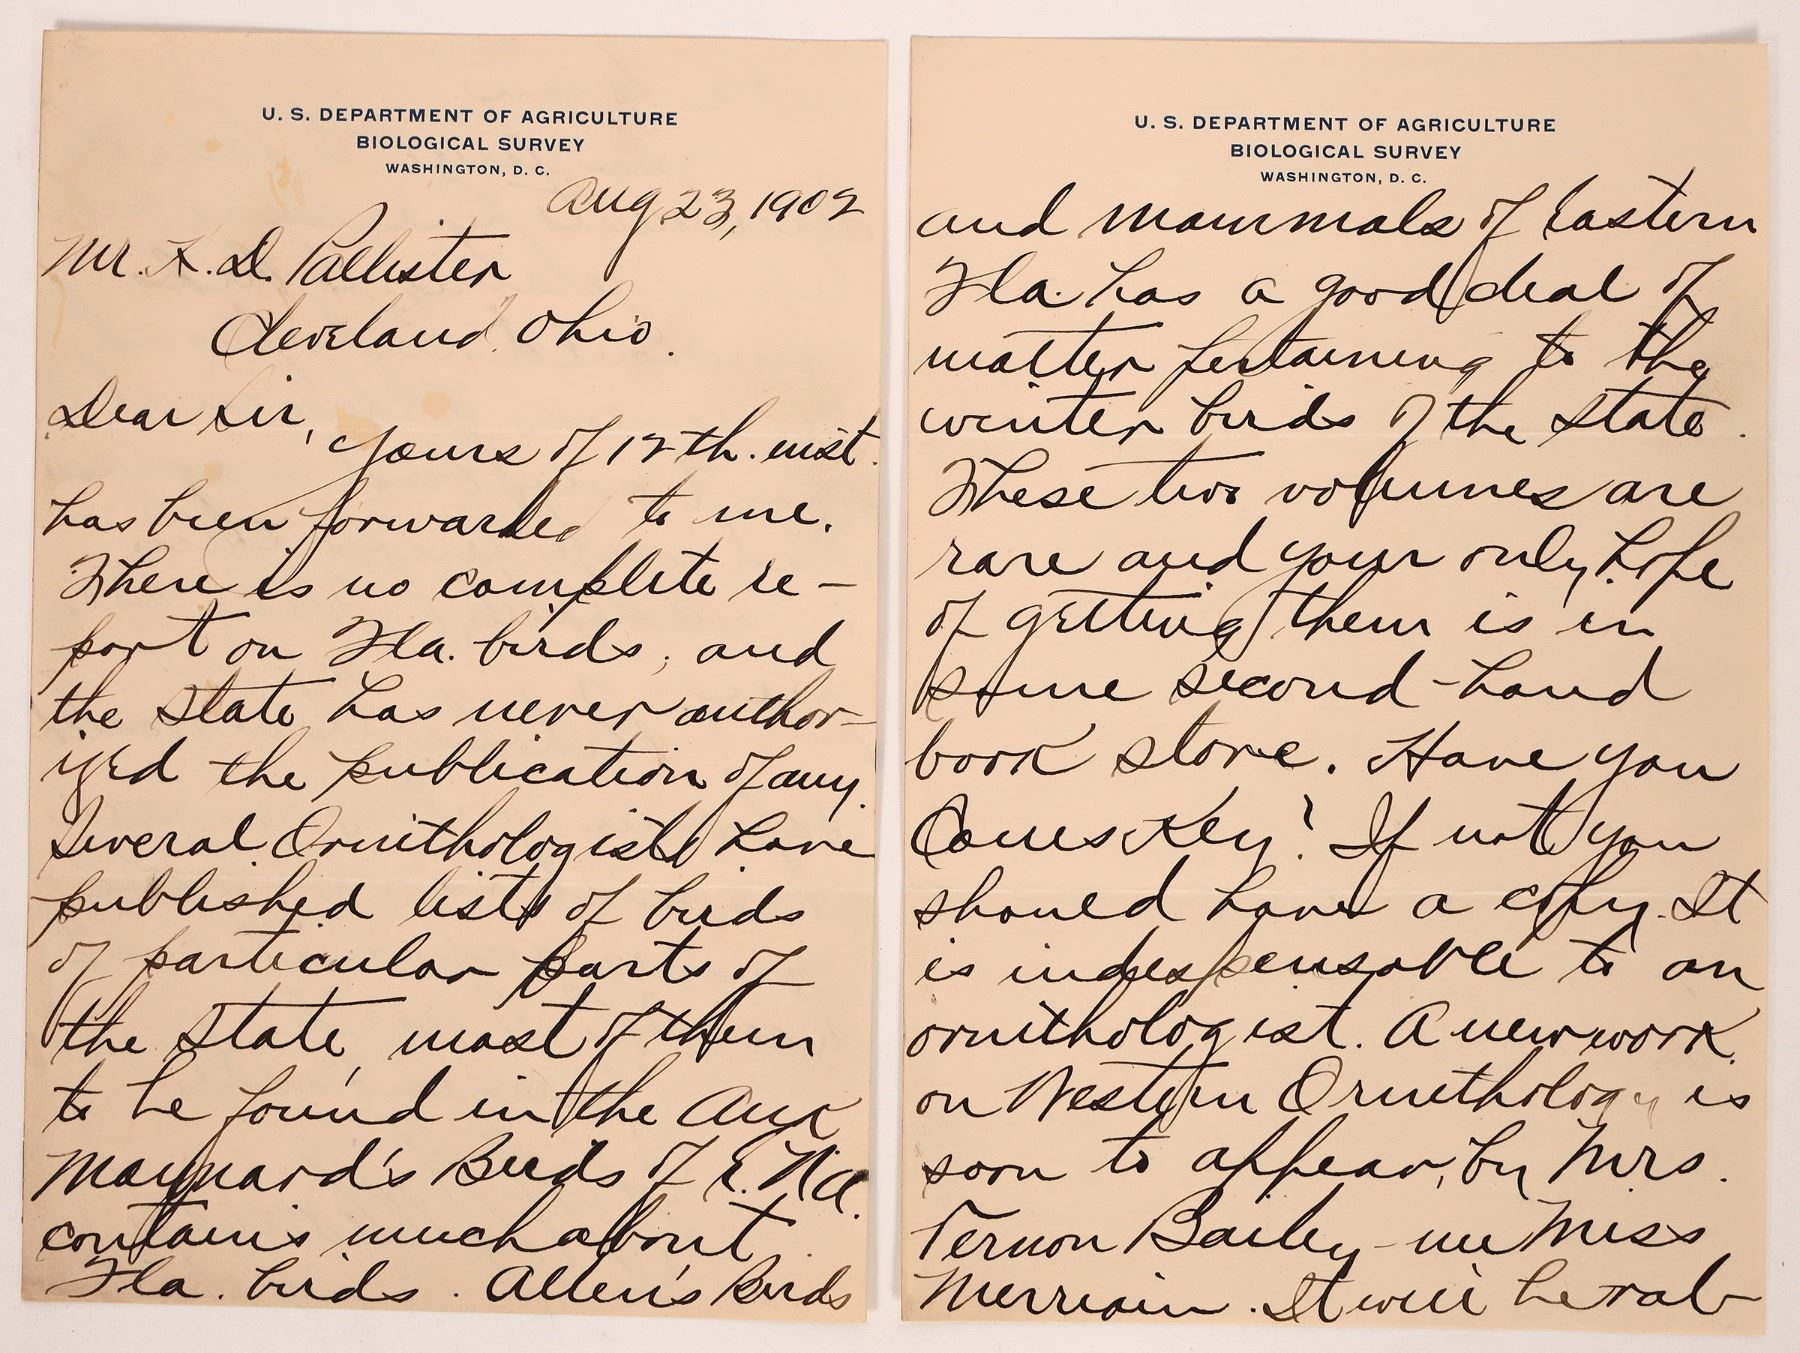 U. S. DEPARTMENT OF AGRICULTURE
BIOLOGICAL SURVEY
WASHINGTON, D. C.
Aug 23, 1902
Mr. A. D. Pallister
Cleveland, Ohio.
Dear Sir,
Yours of 12th. inst.
has been forwarded to me.
There is no complete re-
port on Fla. birds, and
the State has never author-
ized the publication of any.
Several Ornithologists have
published lists of birds
of particular parts of
the State, most of them
to be found in the Auk
Maynard's Birds of E. N.A.
contains much about
Fla. birds. Allen's Birds
U. S. DEPARTMENT OF AGRICULTURE
BIOLOGICAL SURVEY
WASHINGTON, D. C.
and mammals of Eastern
Fla. has a good deal of
matter pertaining to the
winter birds of the State.
These two volumes are
rare and your only hope
of getting them is in
some second-hand
book store. Have you
Coues Key? If not you
should have a copy. It
is indespensable to an
ornithologist. A new work
on Western Ornithology is
soon to appear, by Mrs.
Vernon Bailey - nee Miss
Merriam. It will be